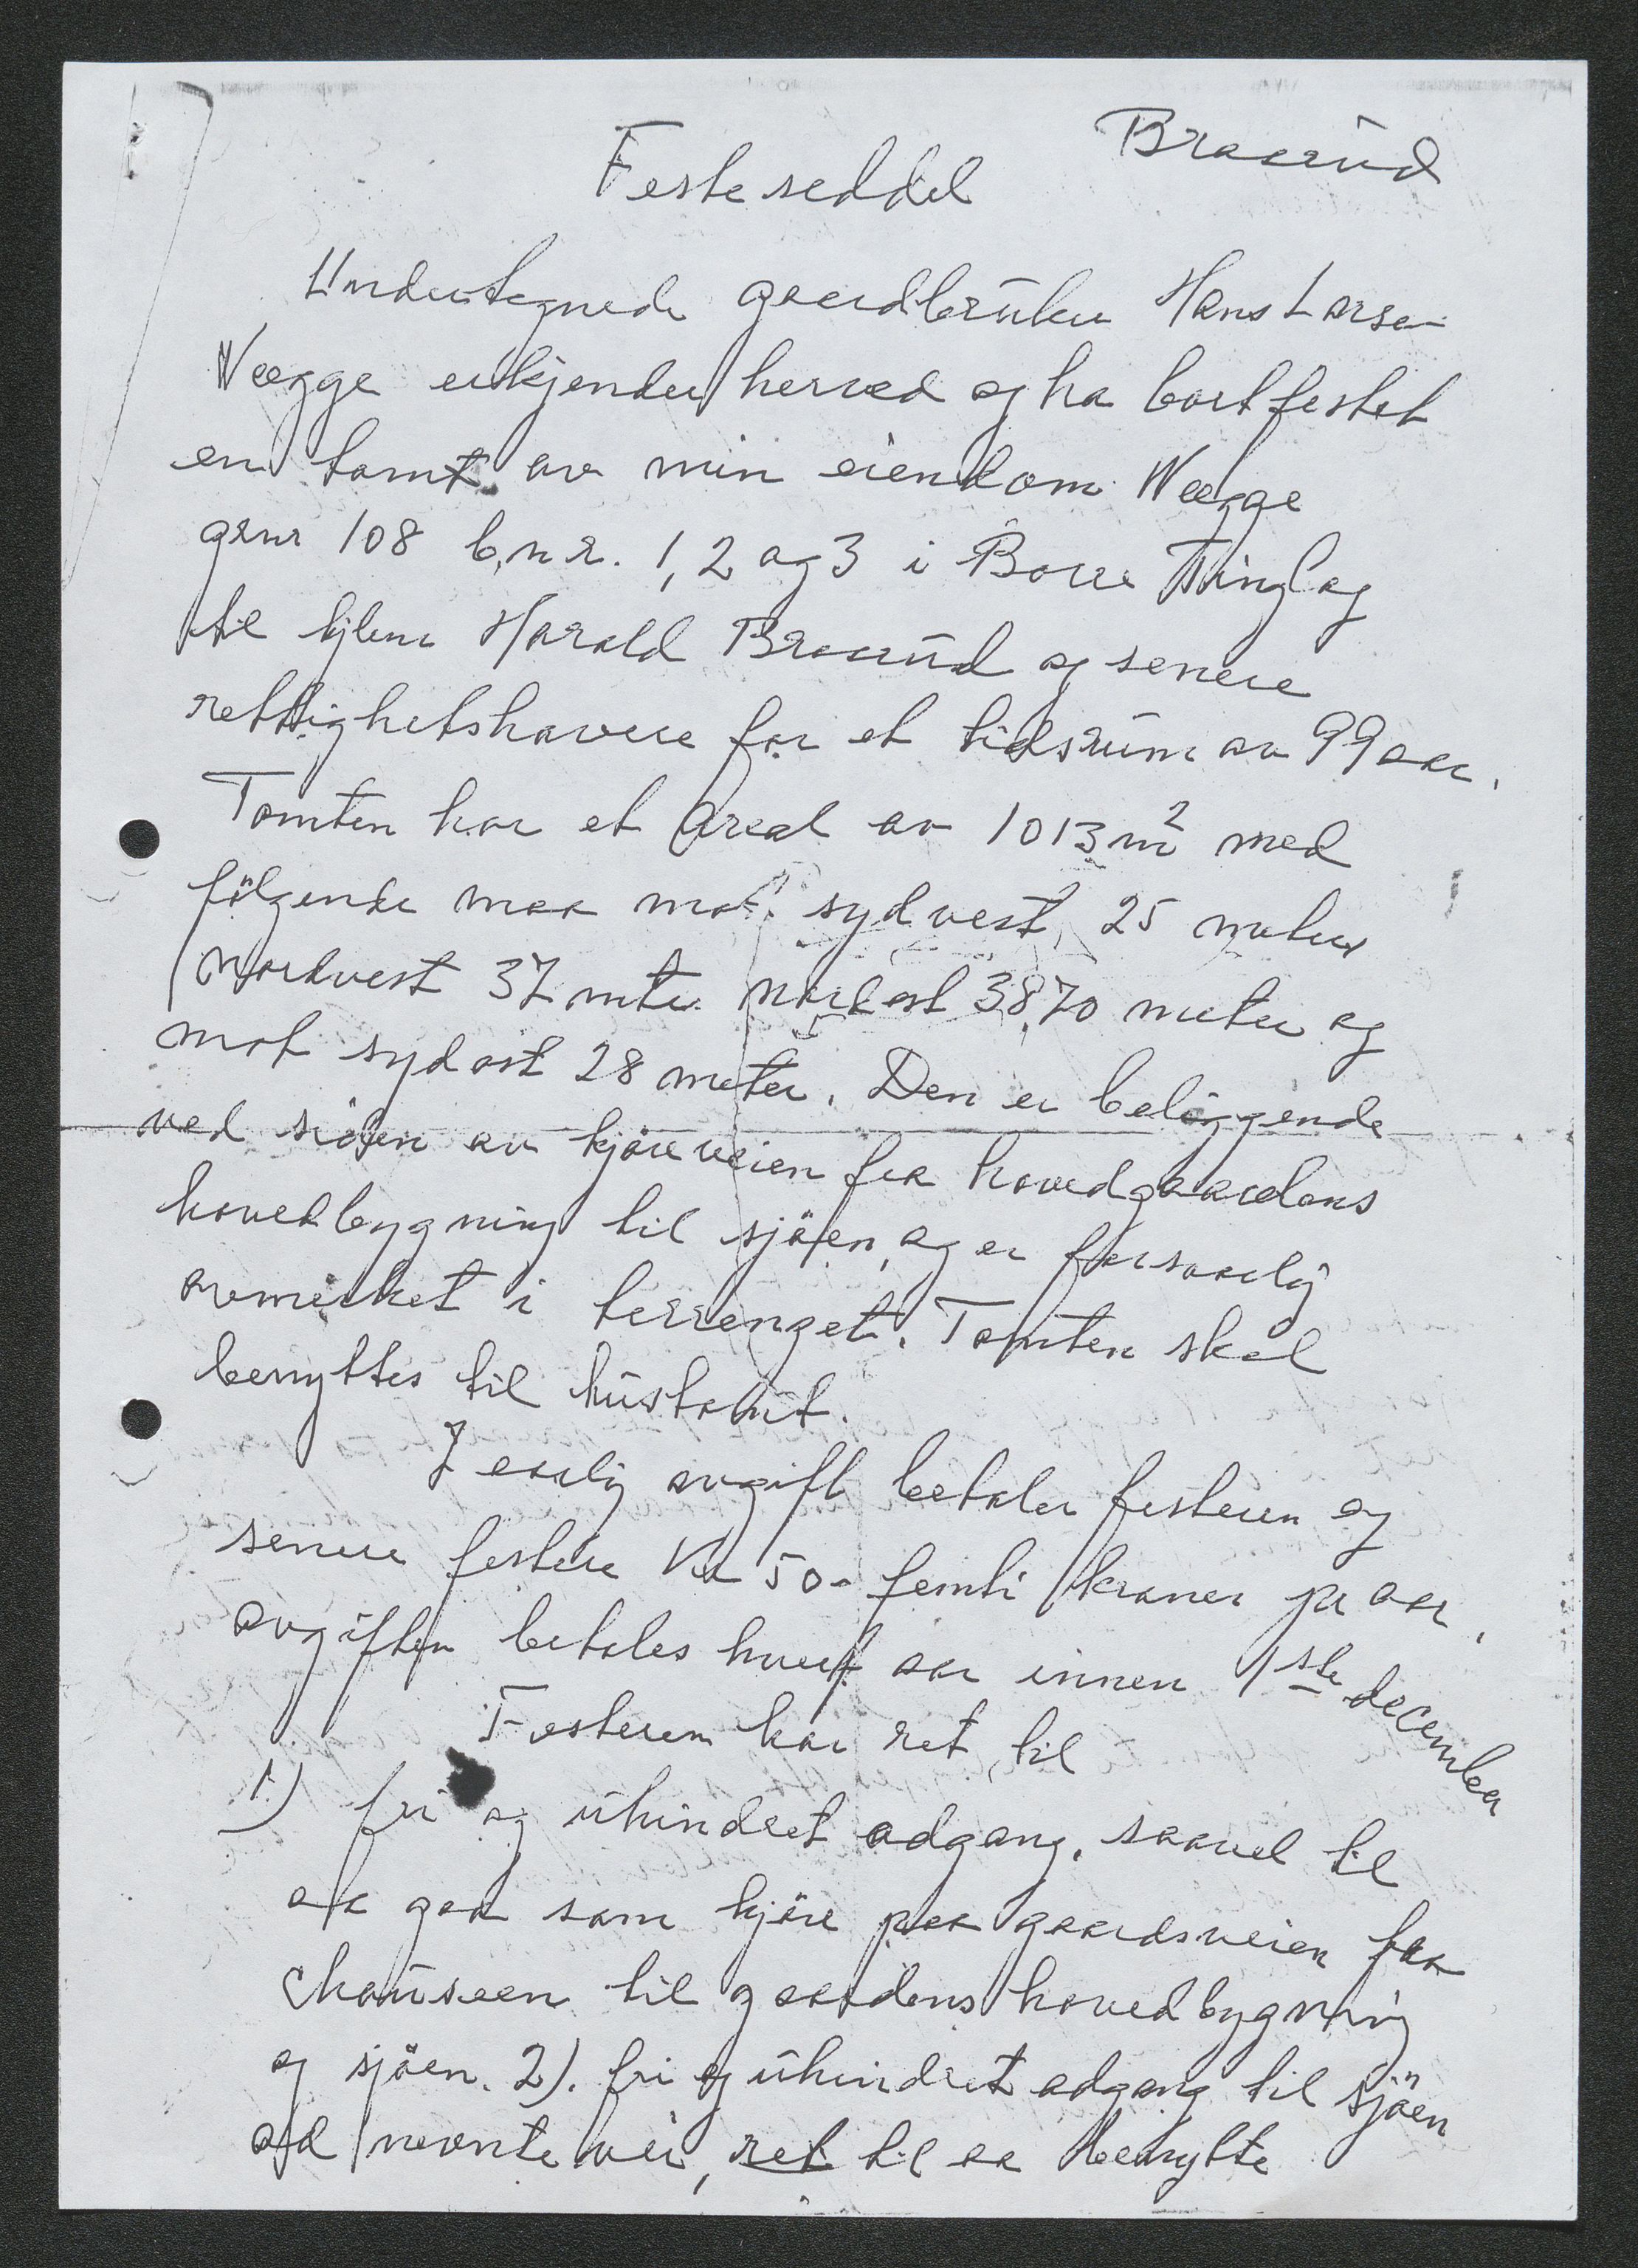 Braarud
Festeseddel
Undertegnede gaardbruker Hans Larsen
Vegge erkjender herved og ha bortfestet
en tomt av min eiendom Vegge
grnr 108 b,nr. 1, 2 og 3 i Borre Tinglag
til hr Harald Braarud og senere
rettighetshavere for et tidsrum av 99 aar.
Tomten har et areal av 1013 m² med
følgende maa mot sydvest 25 meter
Nordvest 37 mtr. Nordost 38,70 meter og
mot sydost 28 meter. Den er beliggende
ved siden av kjøreveien fra hovedgaardens
hovedbygning til sjøen, og er forsvarlig
avmerket i terrenget. Tomten skal
benyttes til hustomt.
I aarlig avgift betaler festeren og
senere festere Kr 50- femti kroner pr aar,
avgiften betales hvert aar innen 1ste december
Festeren har ret til
1) fri og uhindret adgang, saavel til
aa gaa som kjøre paa gaardsveien fra
Chausseen til gaardens hovedbygning
og sjøen. 2). fri og uhindret adgang til sjøen
ad nevnte vei, ret til aa benytte